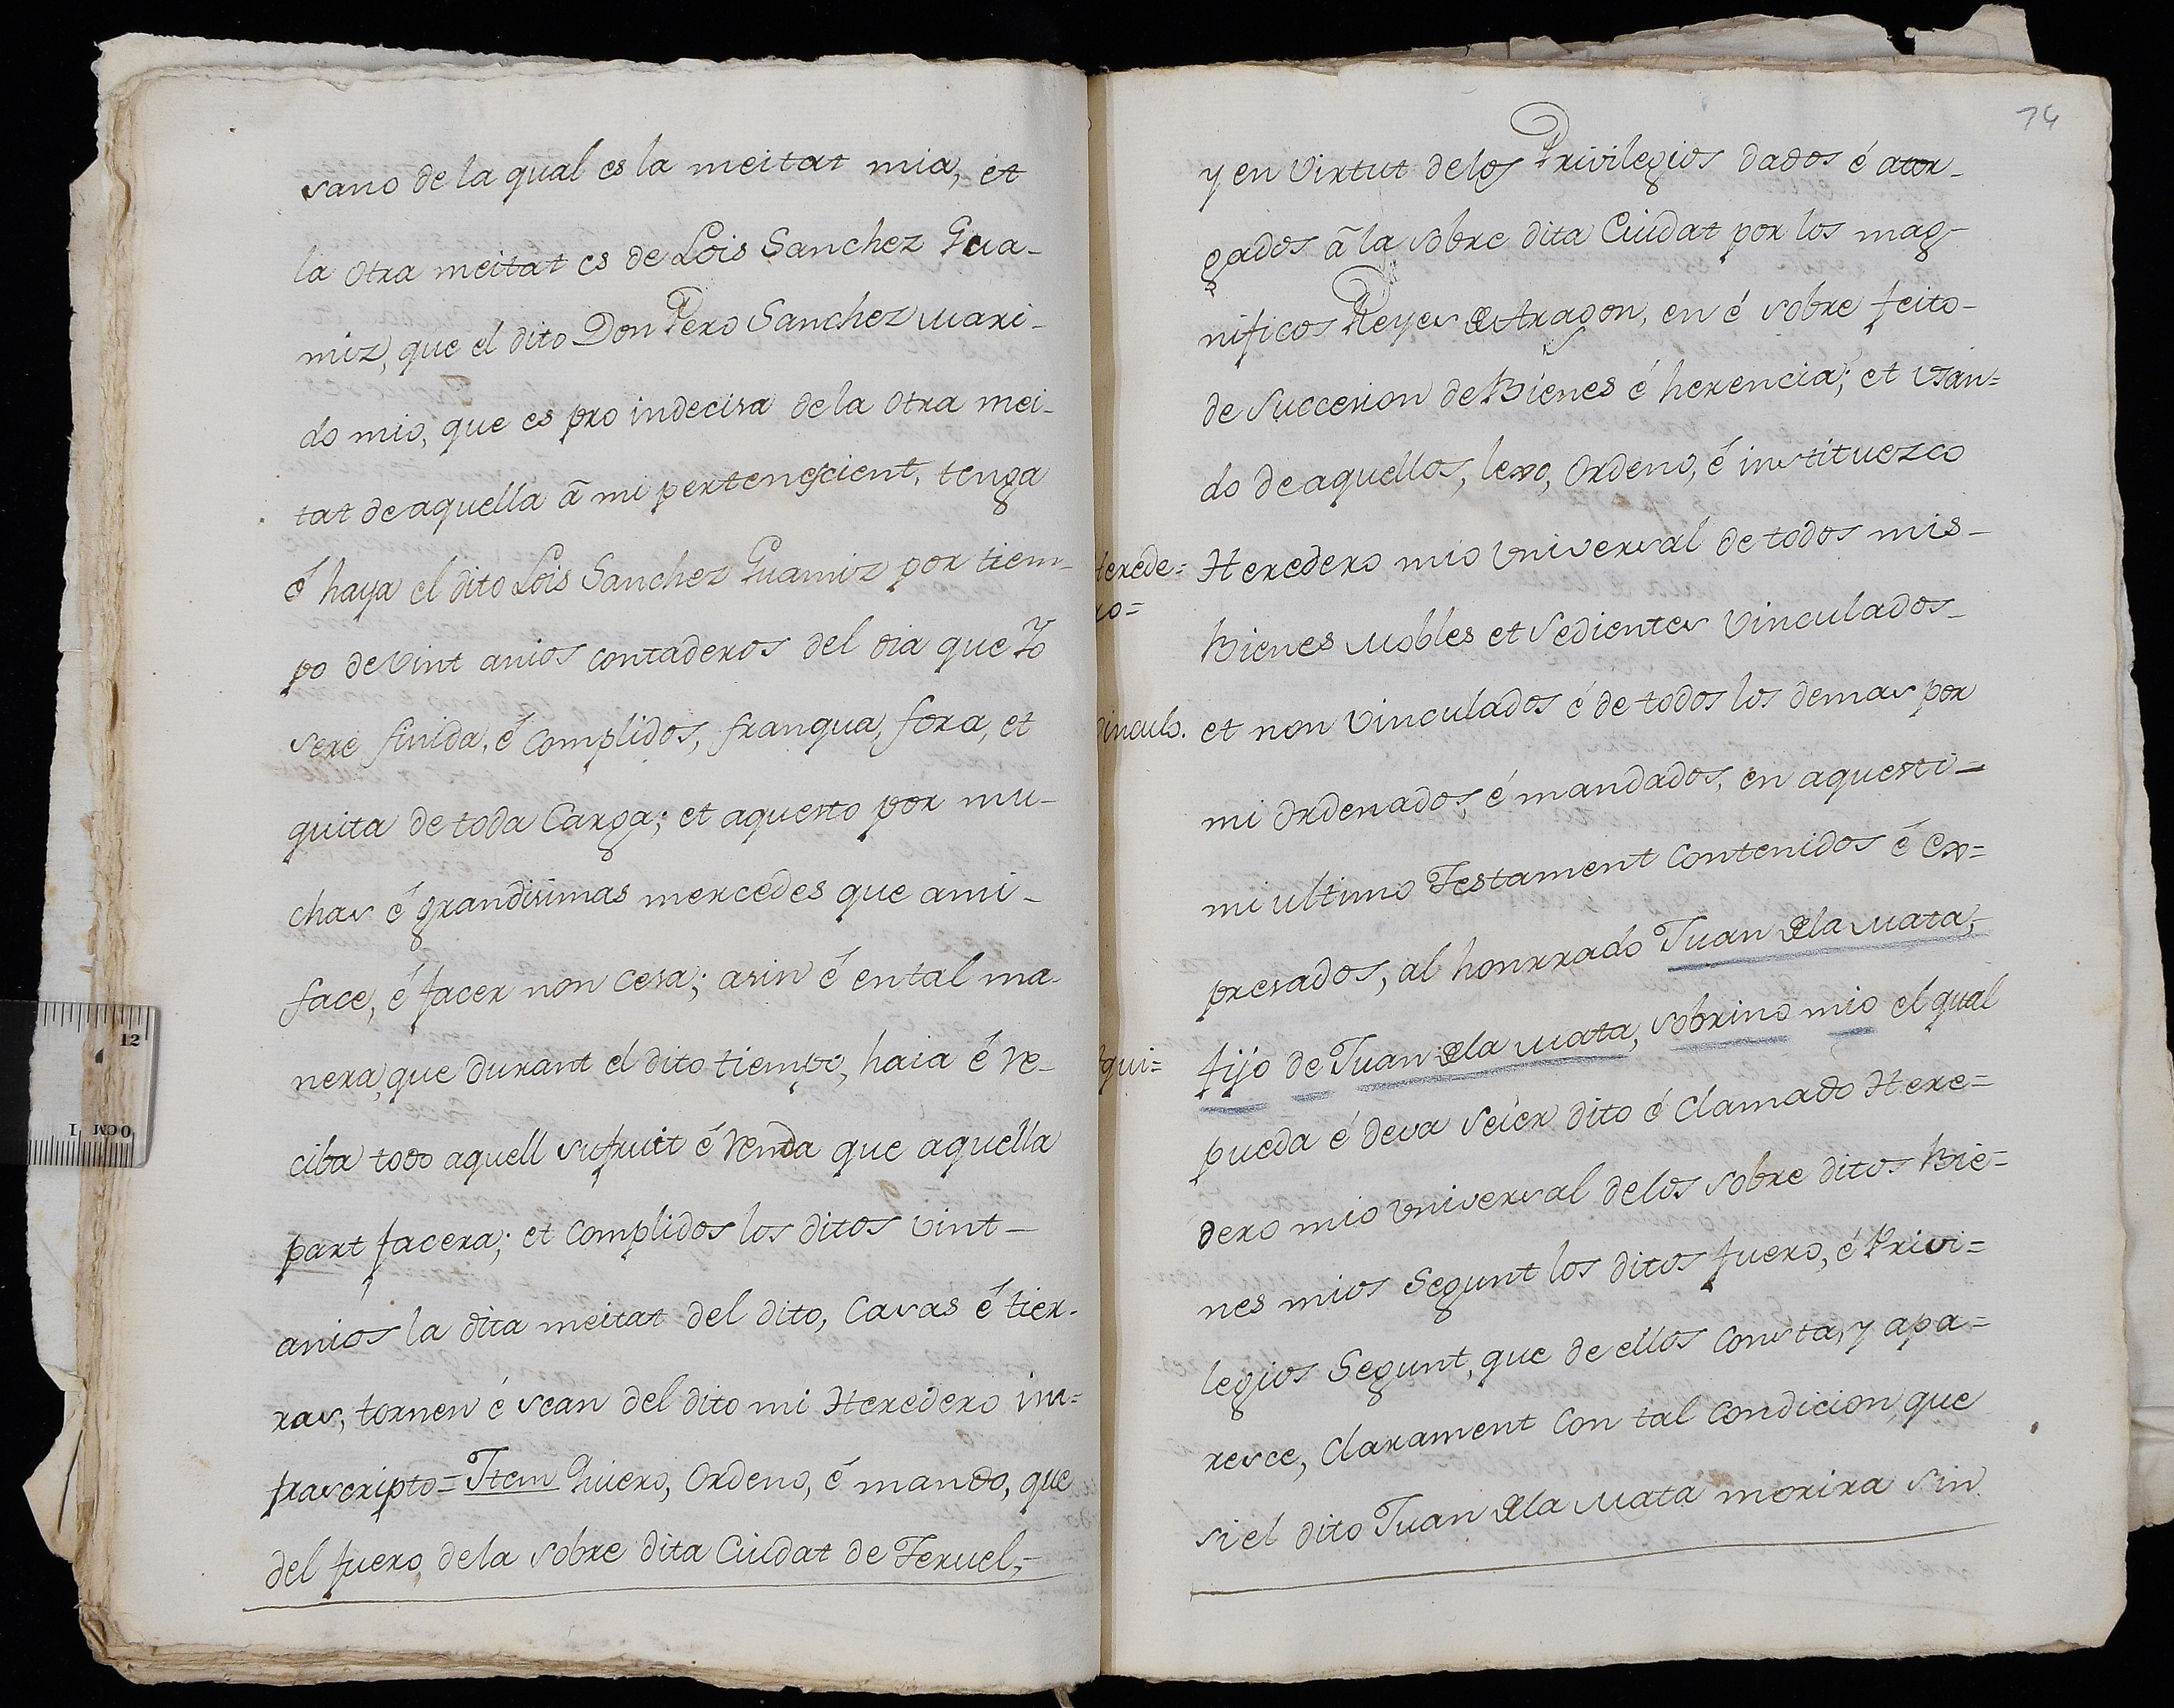 sano de la qual es la meitat mia, et
la otra meitat es de Lois Sanchez Gua-
miz, que el dito Don Pero Sanchez Mari-
do mio, que es pro indecisa de la otra mei-
tat de aquella â mi pertenescient, tenga
é haya el dito Lois Sanchez Guamiz por tiem-
po de vint anios contaderos del dia que Yo
seré finida, é complidos, franqua, fora, et
quita de toda Carga; et aquesto por mu-
chas é grandisimas mercedes que ami-
face, é facer non cesa; asin é en tal ma-
nera, que durant el dito tiempo, haia é re-
ciba todo aquell sufruit é Renda que aquella
part facera; et complidos los ditos vint-
anios la dita meitat del dito, Casas é tier-
ras, tornen é sean del dito mi Heredero in-
frascripto= Item Quiero, Ordeno, é mando, que
del fuero de la sobre dita Ciudat de Teruel,-
74
y en Virtut de los Privilegios dados é ator-
gados â la sobre dita Ciudat por los mag-
nificos Reyes de Aragon, en é sobre feito-
de Succesion de Bienes é herencia; et usan=
do de aquellos, lexo, Ordeno, é instituezco
Herede= Heredero mio universal de todos mis-
ro=
Bienes Mobles et Sedientes Vinculados-
Vinculo. et non Vinculados é de todos los demas por
mi Ordenados, é mandados, en aquesti=
mi ultimo Testament Contenidos é Ex=
presados, al honrrado Juan de la Mata,-
Aqui= fijo de Juan de la Mata, sobrino mio el qual
pueda é deva seier dito é Clamado Here=
dero mio universal de los sobre ditos Bie=
nes mios Segunt los ditos fuero, é Privi=
legios Segunt, que de ellos Consta, y apa=
resce, Clarament Con tal Condicion, que
si el dito Juan de la Mata morira sin